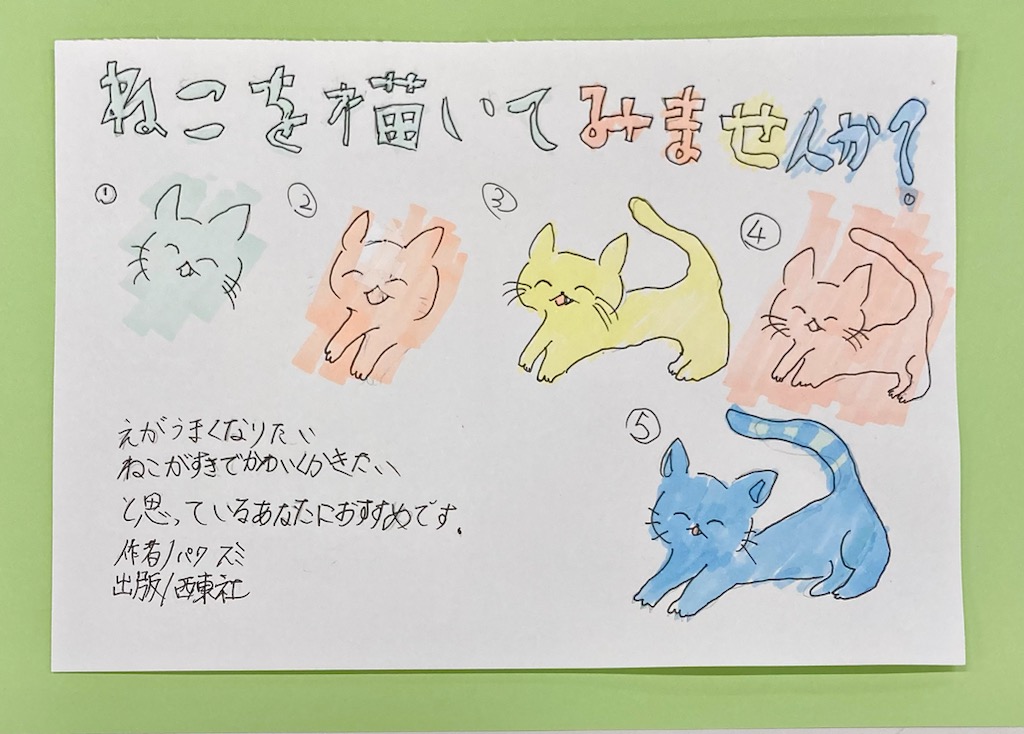 ねこを描いてみませんか?
①
②
③
④
⑤
えがうまくなりたい
ねこがすきでかわいくかきたい
と思っているあなたにおすすめです.
作者/パク ズミ
出版/西東社